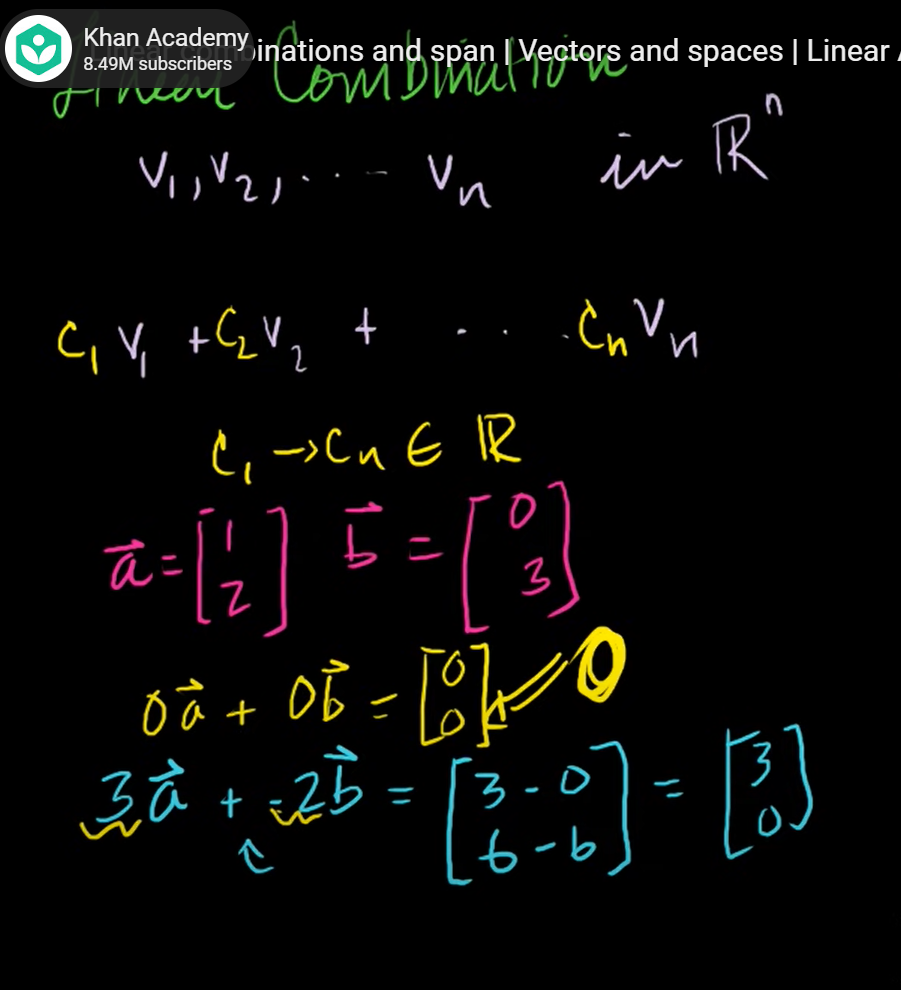 Khan Academy
8.49M subscribers
inations and span | Vectors and spaces | Linear
Linear Combination
V₁, V₂, ... Vn in ℝⁿ
C₁V₁ + C₂V₂ + ... CnVn
C₁ → Cn ∈ ℝ
a⃗ = [1 2] b⃗ = [0 3]
0a⃗ + 0b⃗ = [0 0] ⇐ 0
3a⃗ + -2b⃗ = [3 - 0 6 - 6] = [3 0]